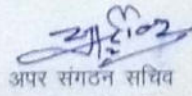 अपर संगठन सचिव